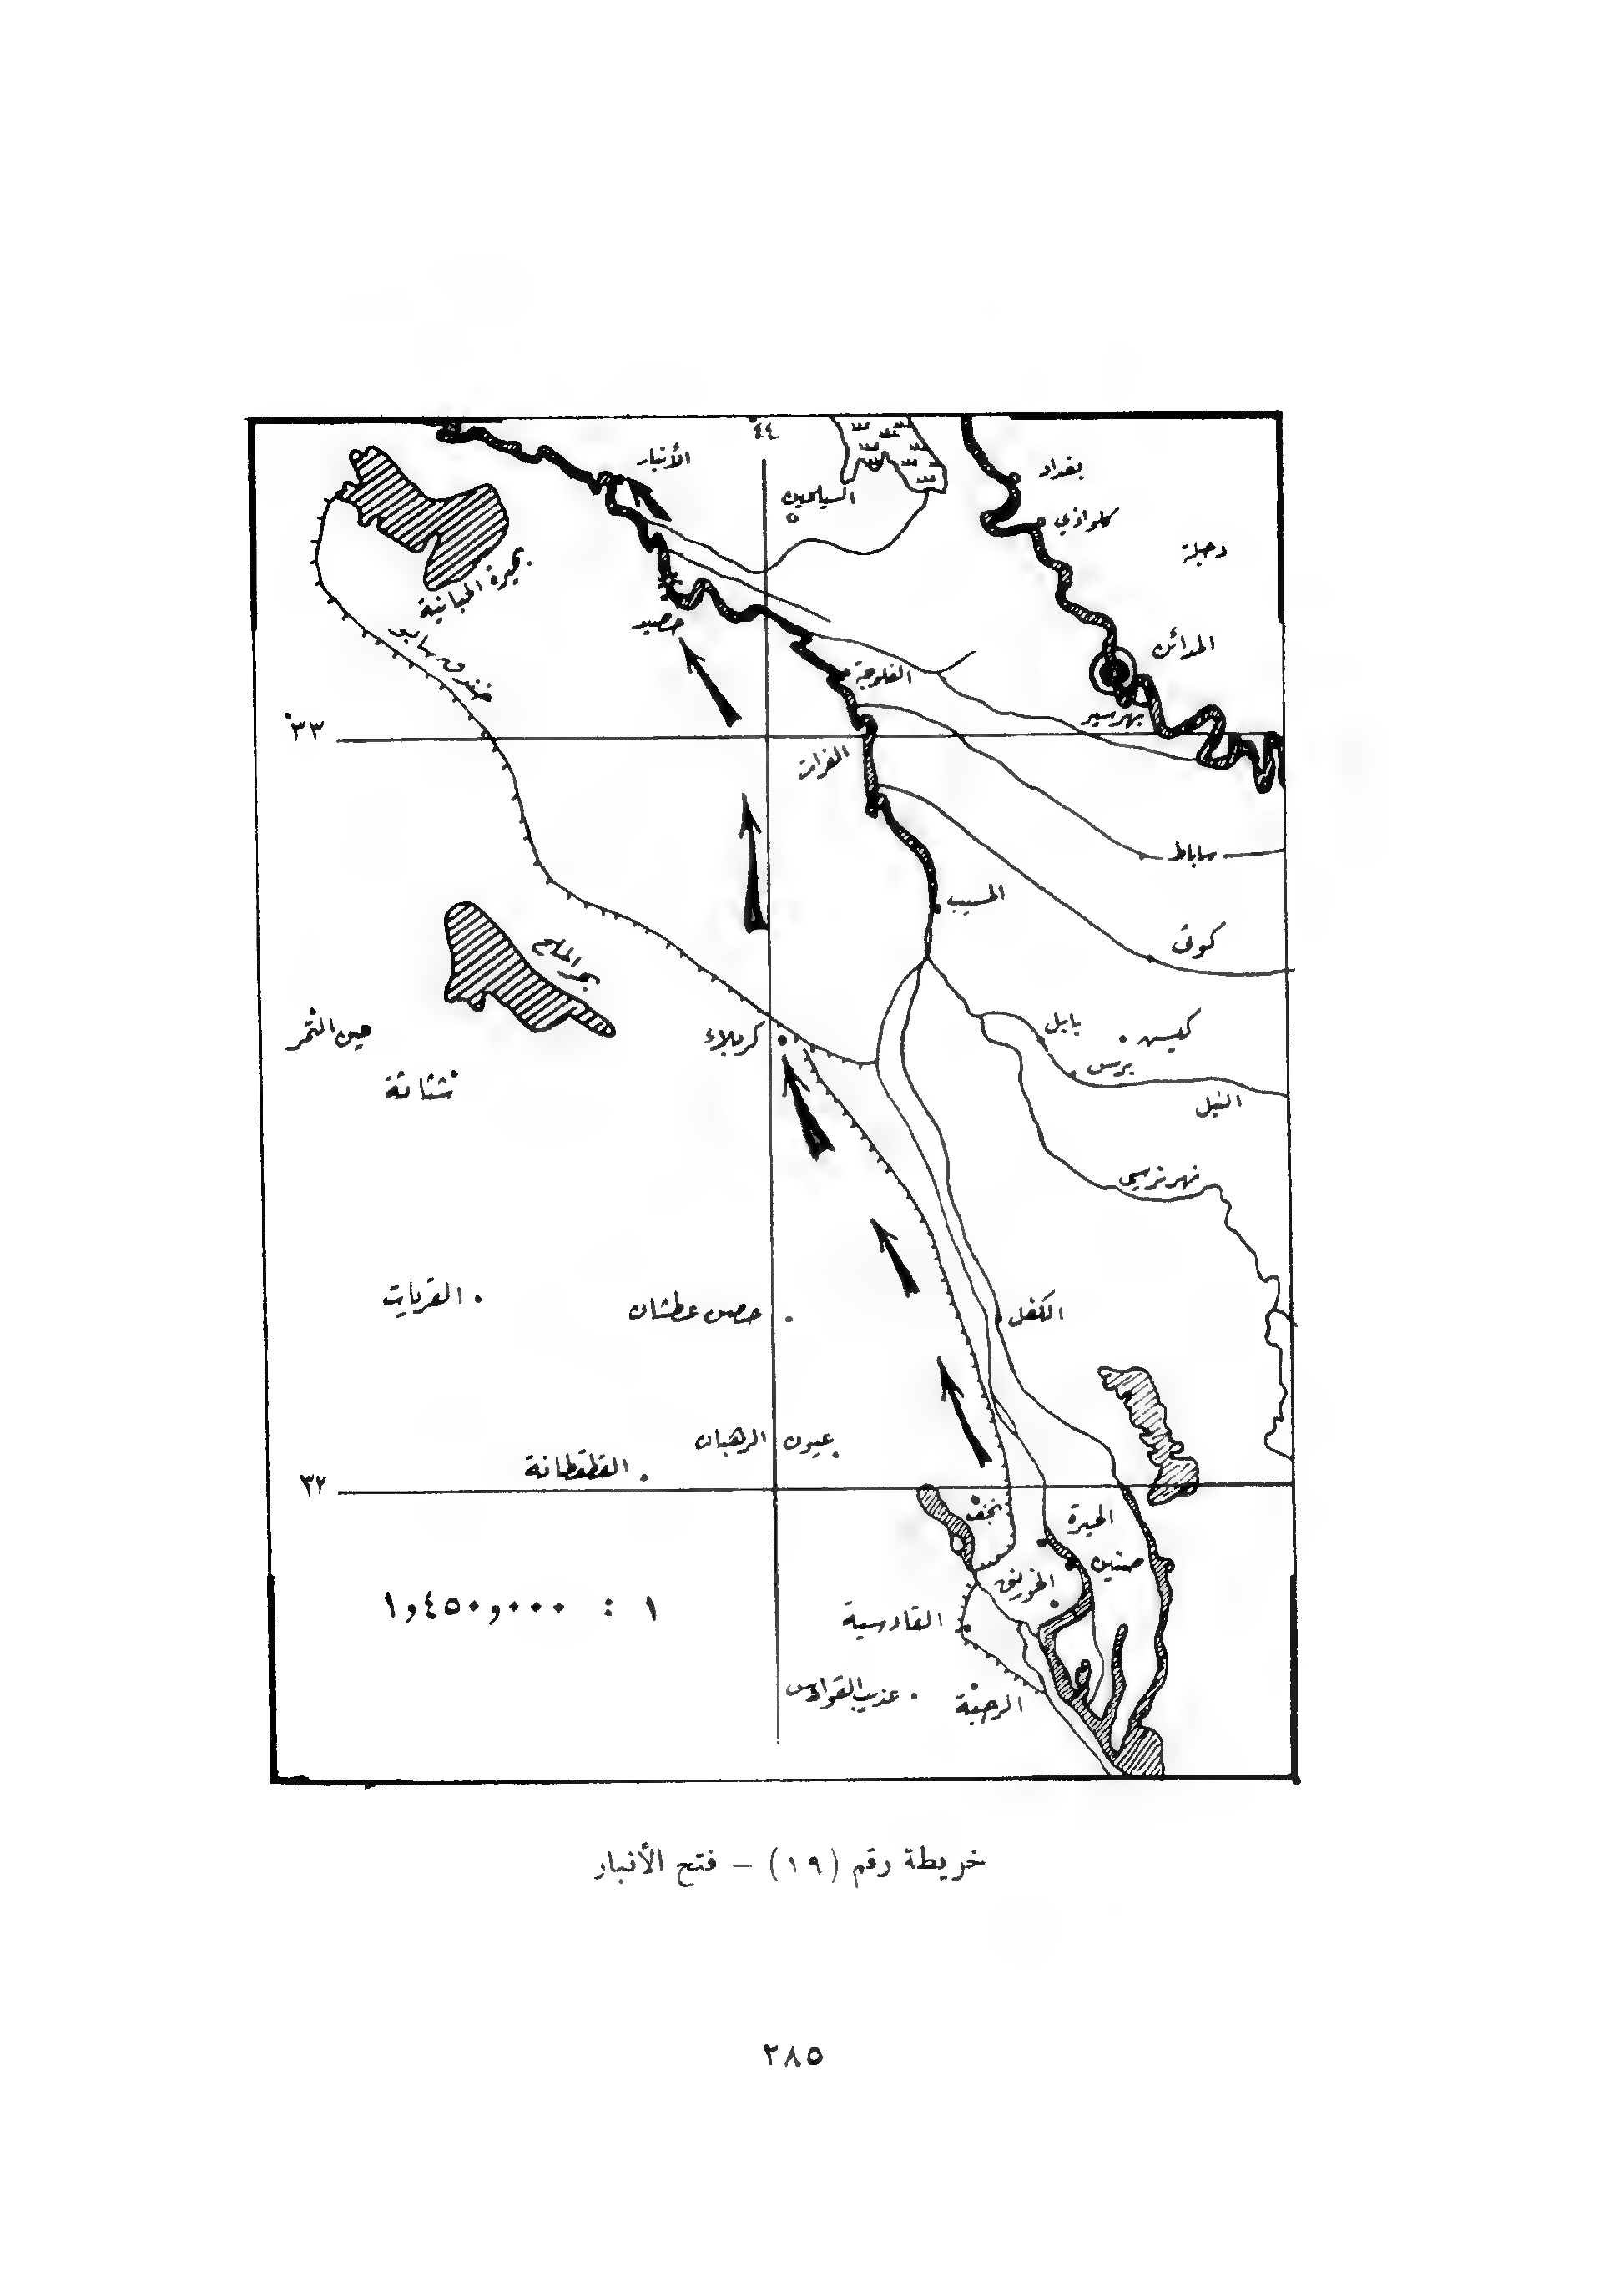 ٤٤
الأنبار
بغداد
السيلحين
كلواذي
دجلة
بحيرة الحبانية
حصيد
خندق سابو
المدائن
الفلوجة
بهرسير
٣٣°
الفرات
ساباط
المسيب
كوثى
بحر الملح
عين التمر
كربلاء
بابل
كيس
برس
شثاثة
النيل
نهر نرسي
القريات
حصن عطشان
الكفل
عيون الرهبان
القطقطانة
٣٢
نجف
الحيرة
صنين
الخورنق
١ : ١و٤٥٠و٠٠٠
القادسية
عذيب القوادس
الرحبة
خريطة رقم (١٩) – فتح الأنبار
٢٨٥